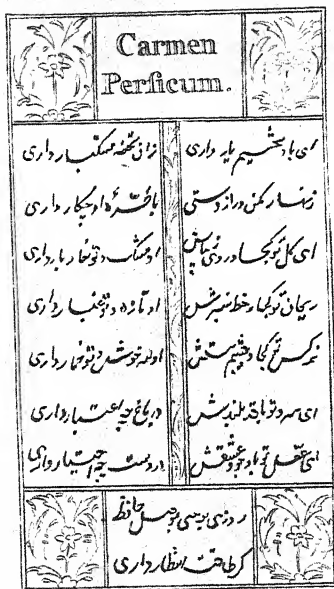 Carmen
Persicum.
ای باد نسیم یار داری زان نفحه مشکبار داری
زنهار مکن دراز دستی با طره او چکار داری
ای گل تو کجا و روی زیباش او مشک و تو خار بار داری
ریحان تو کجا و خط سبزش او تازه و تو غبار داری
نرکس تو کجا و چشم مستش او سرخوش و تو خمار داری
ای سرو تو با قد بلندش در باغ چه اعتبار داری
ای عقل تو با وجود عشقش در دست چه اختیار داری
روزی برسی بوصل حافظ
کر طاقت انتظار داری